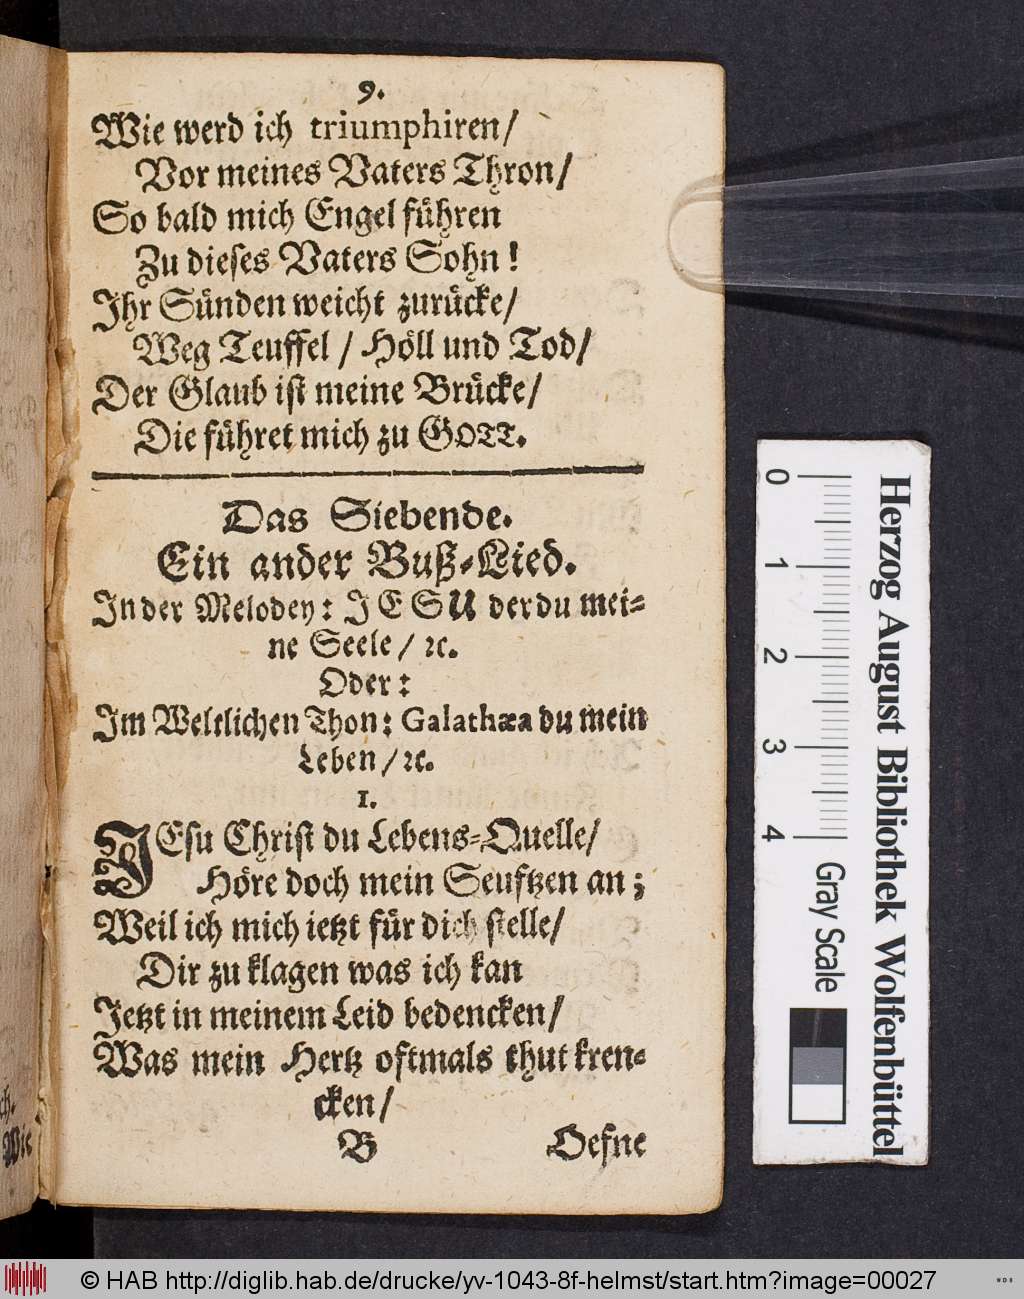 9.
Wie werd ich triumphiren/
Vor meines Vaters Thron/
So bald mich Engel führen
Zu dieses Vaters Sohn!
Ihr Sünden weicht zurücke/
Weg Teuffel / Höll und Tod/
Der Glaub ist meine Brücke/
Die führet mich zu GOTT.
Das Siebende.
Ein ander Buß-Lied.
In der Melodey: JESU der du mei-
ne Seele / ꝛc.
Oder:
Im Weltlichen Thon: Galathæa du mein
Leben / ꝛc.
1.
JEsu Christ du Lebens-Quelle/
Höre doch mein Seuftzen an;
Weil ich mich ietzt für dich stelle/
Dir zu klagen was ich kan
Jetzt in meinem Leid bedencken/
Was mein Hertz oftmals thut kren-
cken/
B Oefne
ch.
Wie
Herzog August Bibliothek Wolfenbüttel
0 1 2 3 4 Gray Scale
© HAB http://diglib.hab.de/drucke/yv-1043-8f-helmst/start.htm?image=00027
WDB